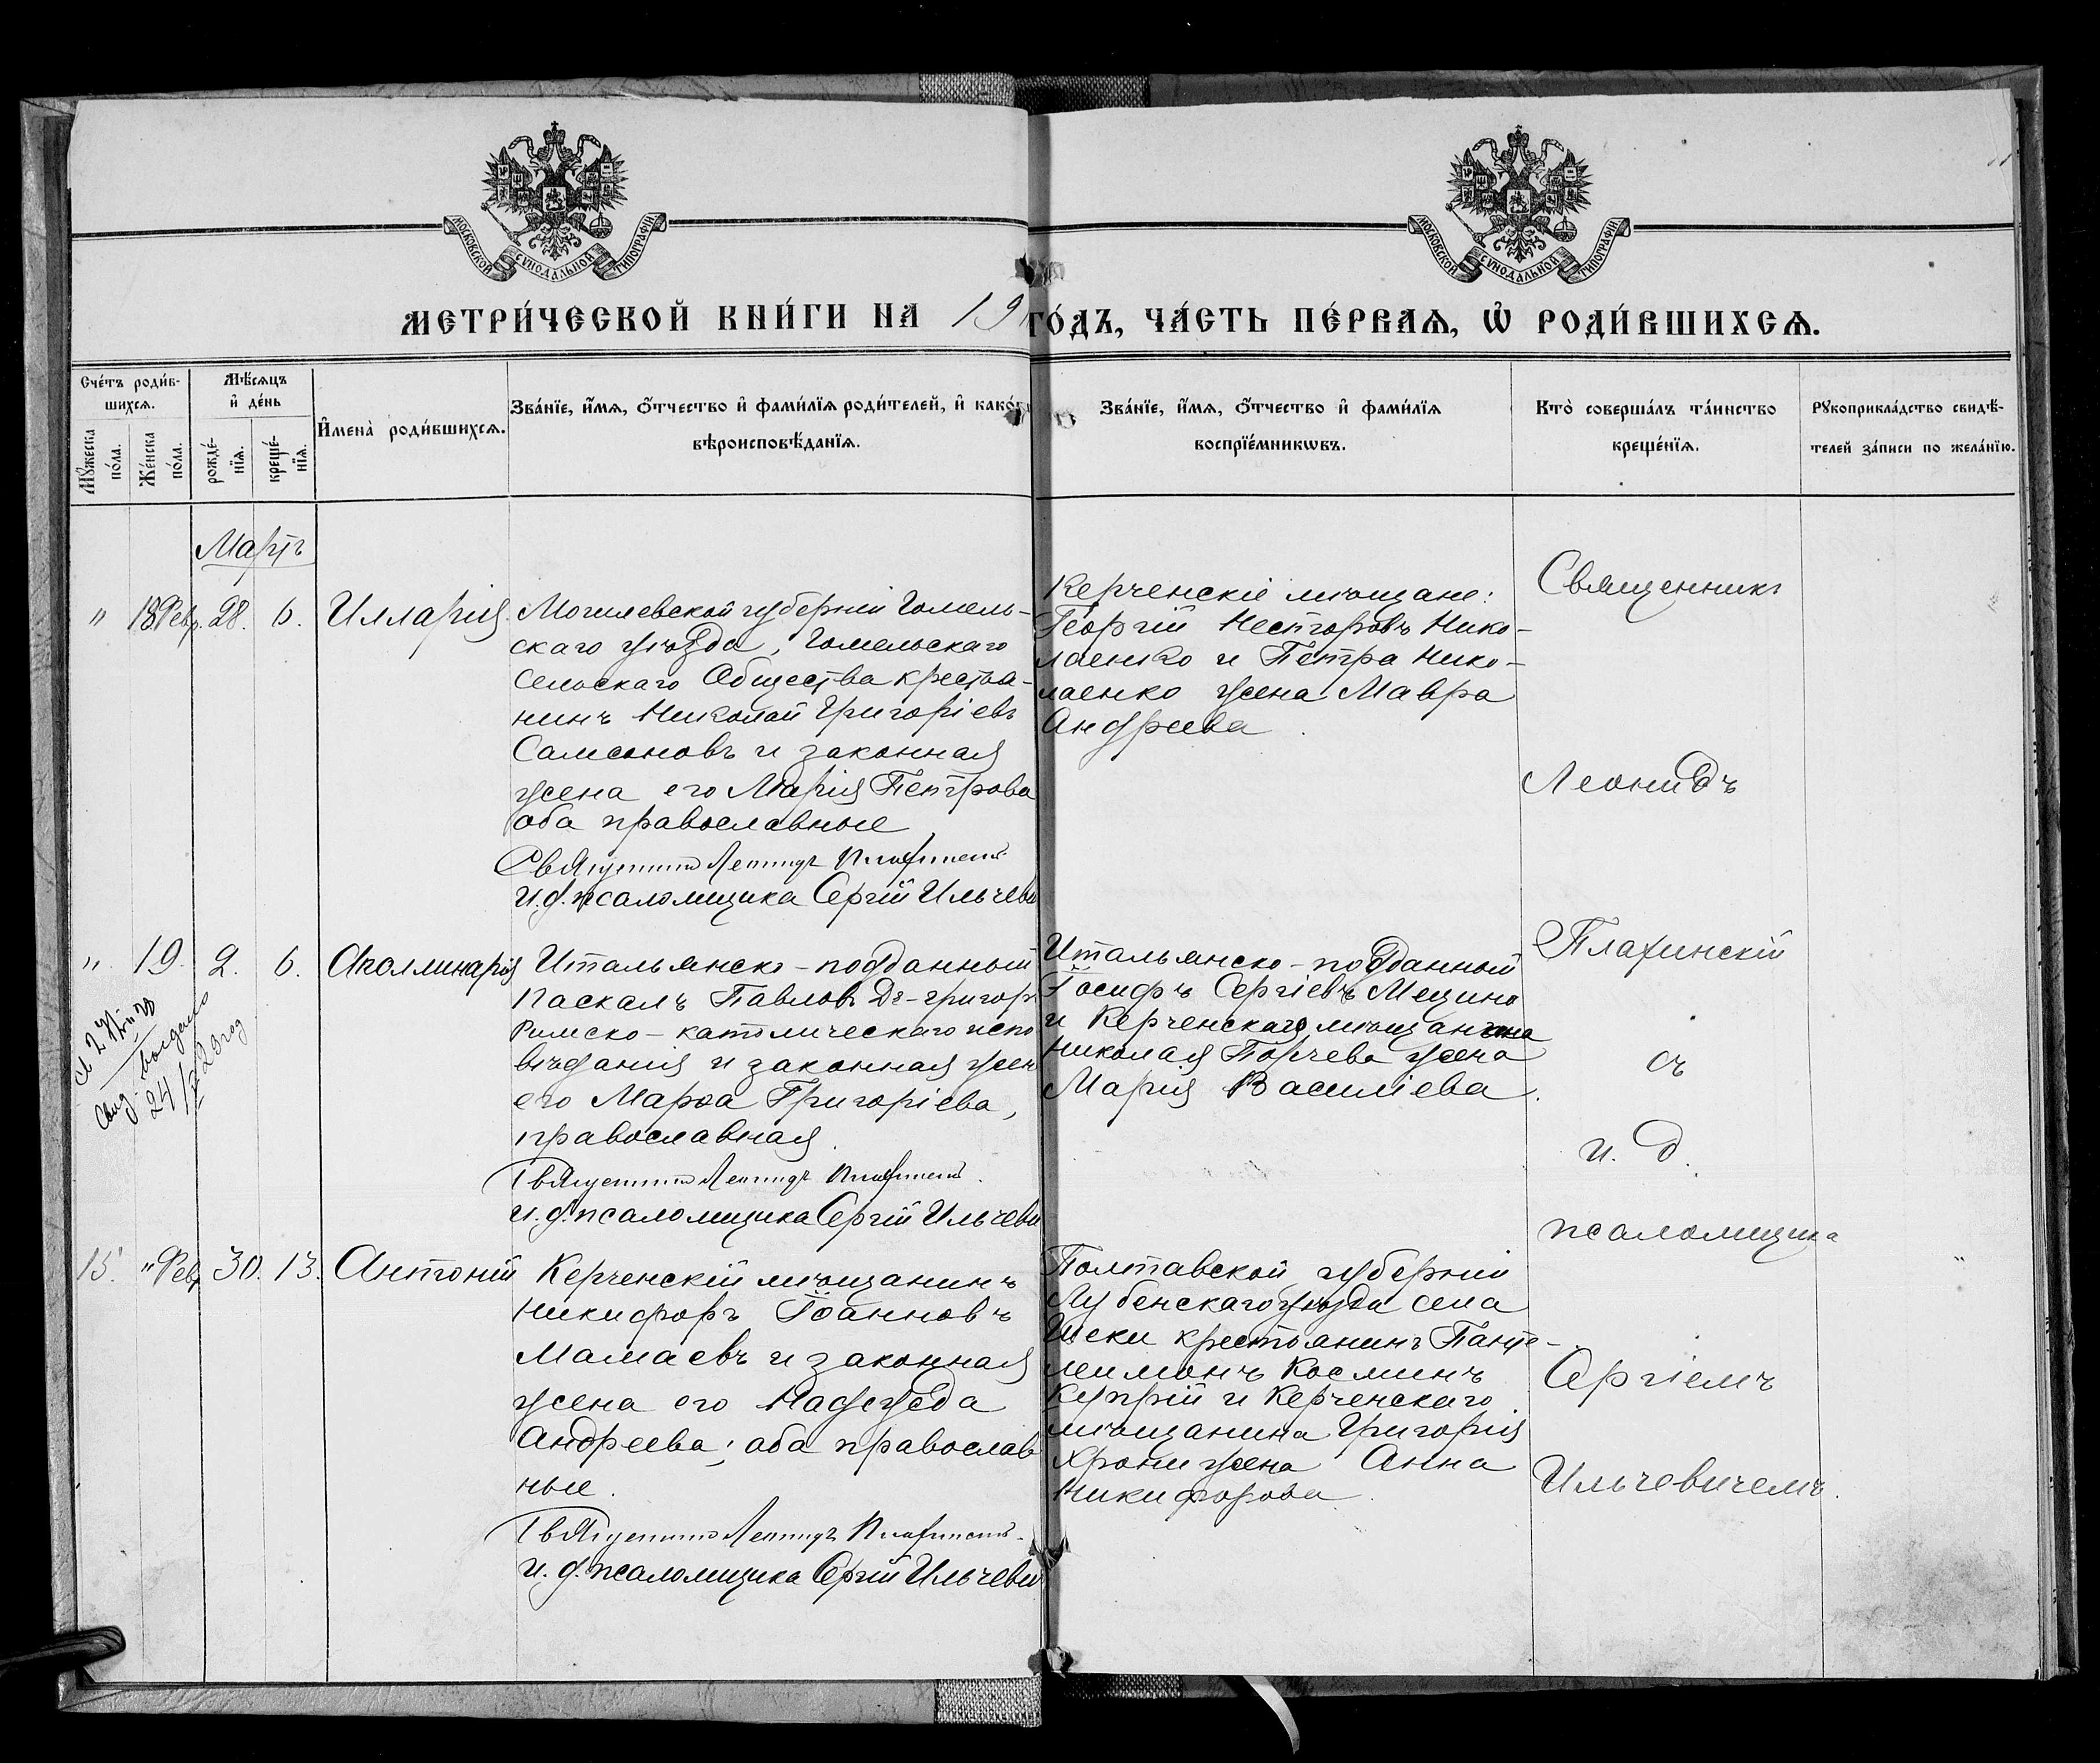 МОСКОВСКОЙ СѴНОДАЛЬНОЙ ТИПОГРАФІИ
МОСКОВСКОЙ СѴНОДАЛЬНОЙ ТИПОГРАФІИ
МЕТРИ́ЧЕСКОЙ КНИ́ГИ НА 19 ГО́ДЪ, ЧА́СТЬ ПЕ́РВАѦ, Ѡ РОДИ́ВШИХСѦ.
Сче́тъ роди́в-
шихсѧ.
Мꙋжеска
по́ла.
Же́нска
по́ла.
Мѣ́сѧцъ
и҆ де́нь
рожде́-
нїѧ.
креще́-
нїѧ.
И҆мена̀ роди́вшихсѧ.
Зва́нїе, и҆́мѧ, ѻ҆́тчество и҆ фами́лїѧ роди́телей, и҆ како́гѡ
вѣроисповѣ́данїѧ.
Зва́нїе, и҆́мѧ, ѻ҆́тчество и҆ фами́лїѧ
воспрїе́мникѡвъ.
Кто̀ соверша́лъ та́инство
креще́нїѧ.
Рꙋкоприкла́дство свидѣ́-
телей за́писи по жела́нїю.
Мартъ
" 18 Февр. 28. 6. Илларія.
Могилевской губерніи Гомель-
скаго уѣзда, Гомельскаго
Сельскаго Общества крестья-
нинъ Николай Григоріевъ
Самсоновъ и законная
жена его Марія Петрова
оба православные
Священникъ Леонидъ Плахинскій
И. д. псаломщика Сергій Ильчеви
Керченскіе мѣщане:
Георгій Несторовъ Нико-
лаенко и Петра Нико-
лаенко жена Мавра
Андреева.
Священникъ
Леонидъ
Плахинскій
съ
и. д.
псаломщика
Сергіемъ
Ильчевичемъ.
" 19. 2. 6. Аполлинарія
выдано
24/ 23 год
Итальянско-подданный
Паскалъ Павловъ Де-Григор
Римско-католическаго испо
вѣданія и законная жен
его Марѳа Григоріева,
православная.
Священникъ Леонидъ Плахинскій.
и. д. псаломщика Сергій Ильчеви
Итальянско-подданный
Іосифъ Сергіевъ Мецино
и Керченскаго мѣщанина
Николая Порчева жена
Марія Василіева.
15. " Фев 30. 13. Антоній
Керченскій мѣщанинъ
Никифоръ Іоанновъ
Мамаевъ и законная
жена его Надежда
Андреева; оба православ
ные.
Священникъ Леонидъ Плахинскій.
И. д. псаломщика Сергій Ильчеви
Полтавской губерніи
Лубенскаго уѣзда села
Шеки крестьянинъ Панте-
леимонъ Косминъ
Куприй и Керченскаго
мѣщанина Григорія
Хрони жена Анна
Никифорова.